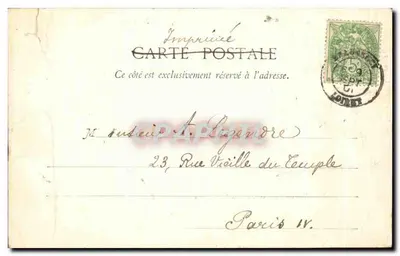 Imprimé
CARTE POSTALE
Ce côté est exclusivement réservé à l'adresse.
Monsieur A. Legendre
23, Rue Vieille du Temple
Paris IV.
LOIRET